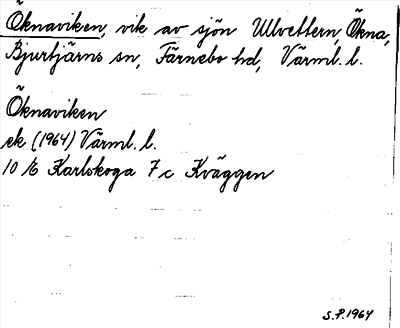 Öknaviken, vik av sjön Ullvettern, Ökna,
Bjurtjärns sn, Färnebo hd, Värml. l.
Öknaviken
ek (1964) Värml. l.
10 E Karlskoga 7 c Kväggen
S.P. 1964